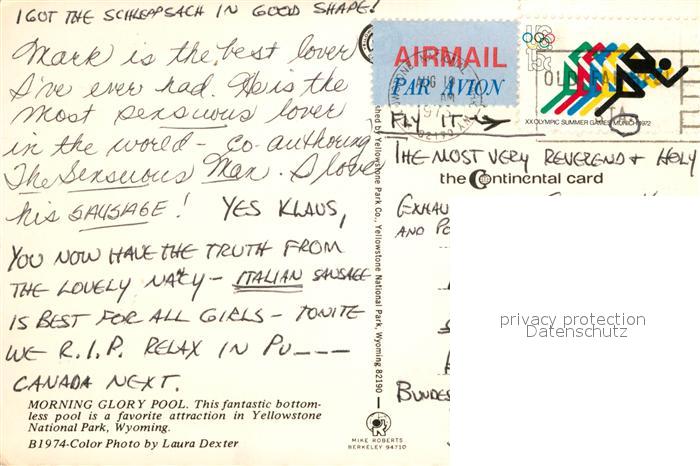 I GOT THE SCHLEPPSACH IN GOOD SHAPE!
Mark is the best lover
I've ever had. He is the
most sensuous lover
in the world - co-authoring
The Sensuous Man. I love
his SAUSAGE! YES KLAUS,
YOU NOW HAVE THE TRUTH FROM
THE LOVELY NANCY - ITALIAN SAUSAGE
IS BEST FOR ALL GIRLS - TONITE
WE R.I.P. RELAX IN PU---
CANADA NEXT.
MORNING GLORY POOL. This fantastic bottom-
less pool is a favorite attraction in Yellowstone
National Park, Wyoming.
B1974-Color Photo by Laura Dexter
shed by Yellowstone Park Co., Yellowstone National Park, Wyoming 82190
MIKE ROBERTS
BERKELEY 94710
AIRMAIL
PAR AVION
YELLOWSTONE NATIONAL
AUG 18
AM
82190
US
15c
XX OLYMPIC SUMMER GAMES MUNICH 1972
FLY IT
THE MOST VERY REVEREND & HOLY
the Continental card
EXHAU
AND PO
BUNDES
privacy protection
Datenschutz